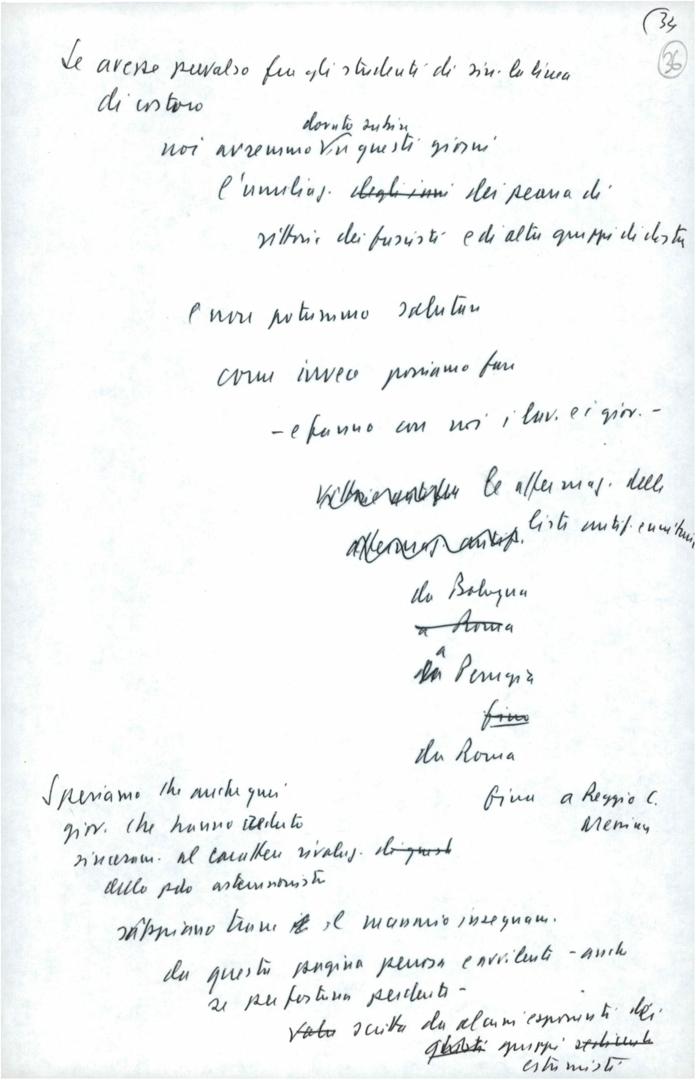 34
36
Se avesse prevalso fra gli studenti di sin. la linea
di costoro
dovuto subire
noi avremmo in questi giorni
l'umiliaz. degli inni dei peana di
vittoria dei fascisti e di altri gruppi di destra
e non potremmo salutare
come invece possiamo fare
- e fanno con noi i lav. e i giov. -
le affermaz. delle
affermaz. antif. liste antif. e unitarie
da Bologna
a Roma
a Perugia
fino
da Roma
fino a Reggio C.
Messina
Speriamo che anche quei
giov. che hanno creduto
sinceram. al carattere rivoluz. di quest
dello pdo astensionista
sappiano trarre il necessario insegnam.
da questa pagina penosa e avvilente - anche
se per fortuna perdente -
scritta da alcuni esponenti dei
gruppi
estremisti